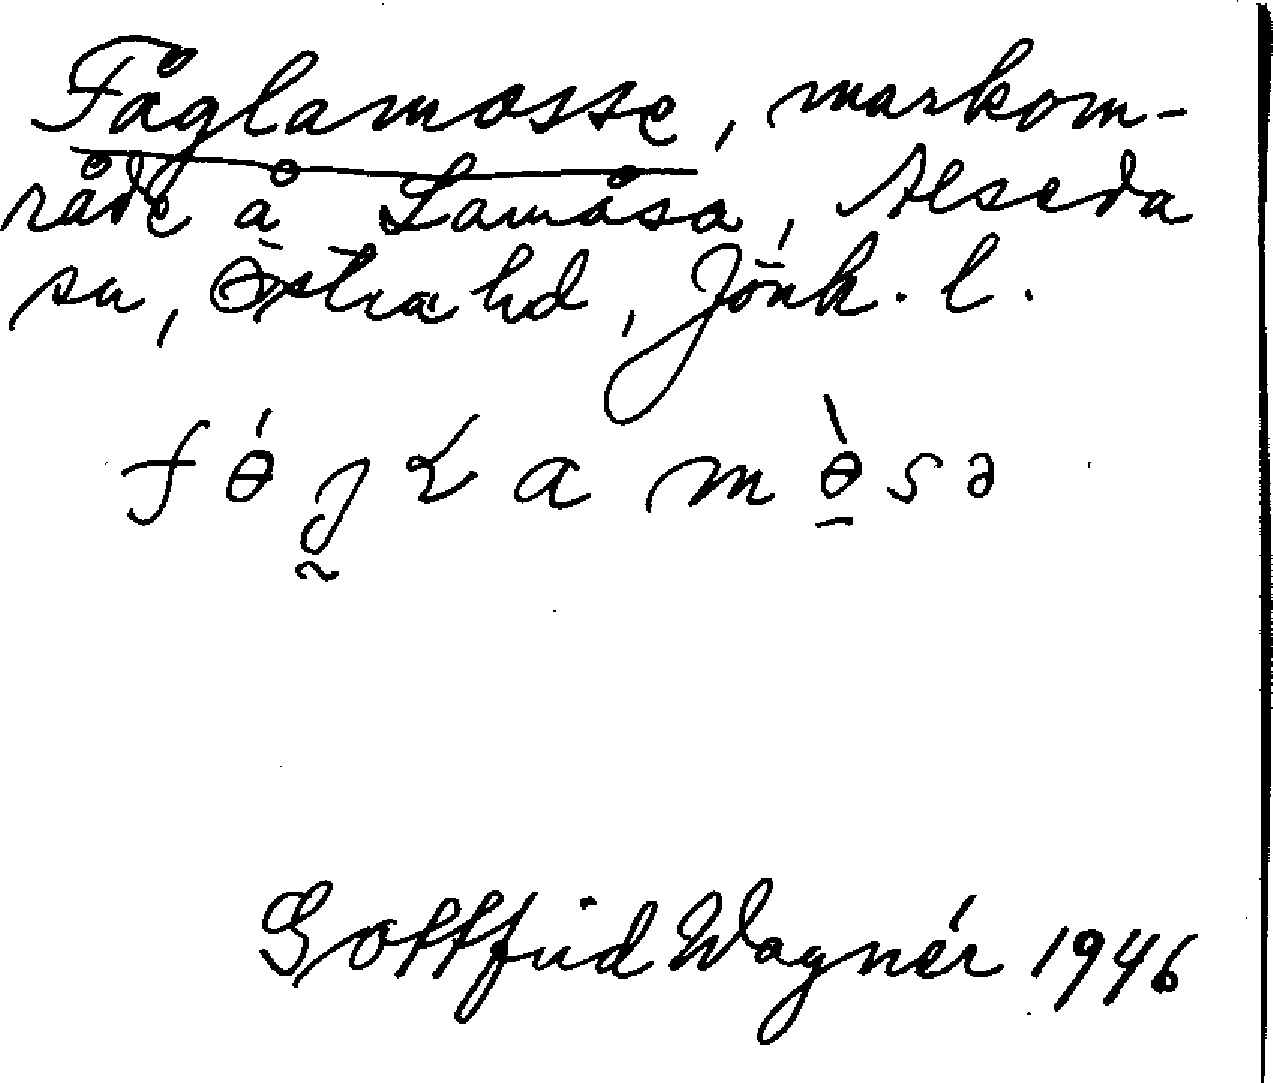 Fåglamosse, markom-
råde å Lamåsa, Alseda
sn, Östra hd, Jönk. l.
Gottfrid Wagnér 1946